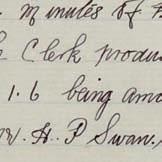 minutes of
Clerk produ
1.6 being amo
W. H. P Swan.